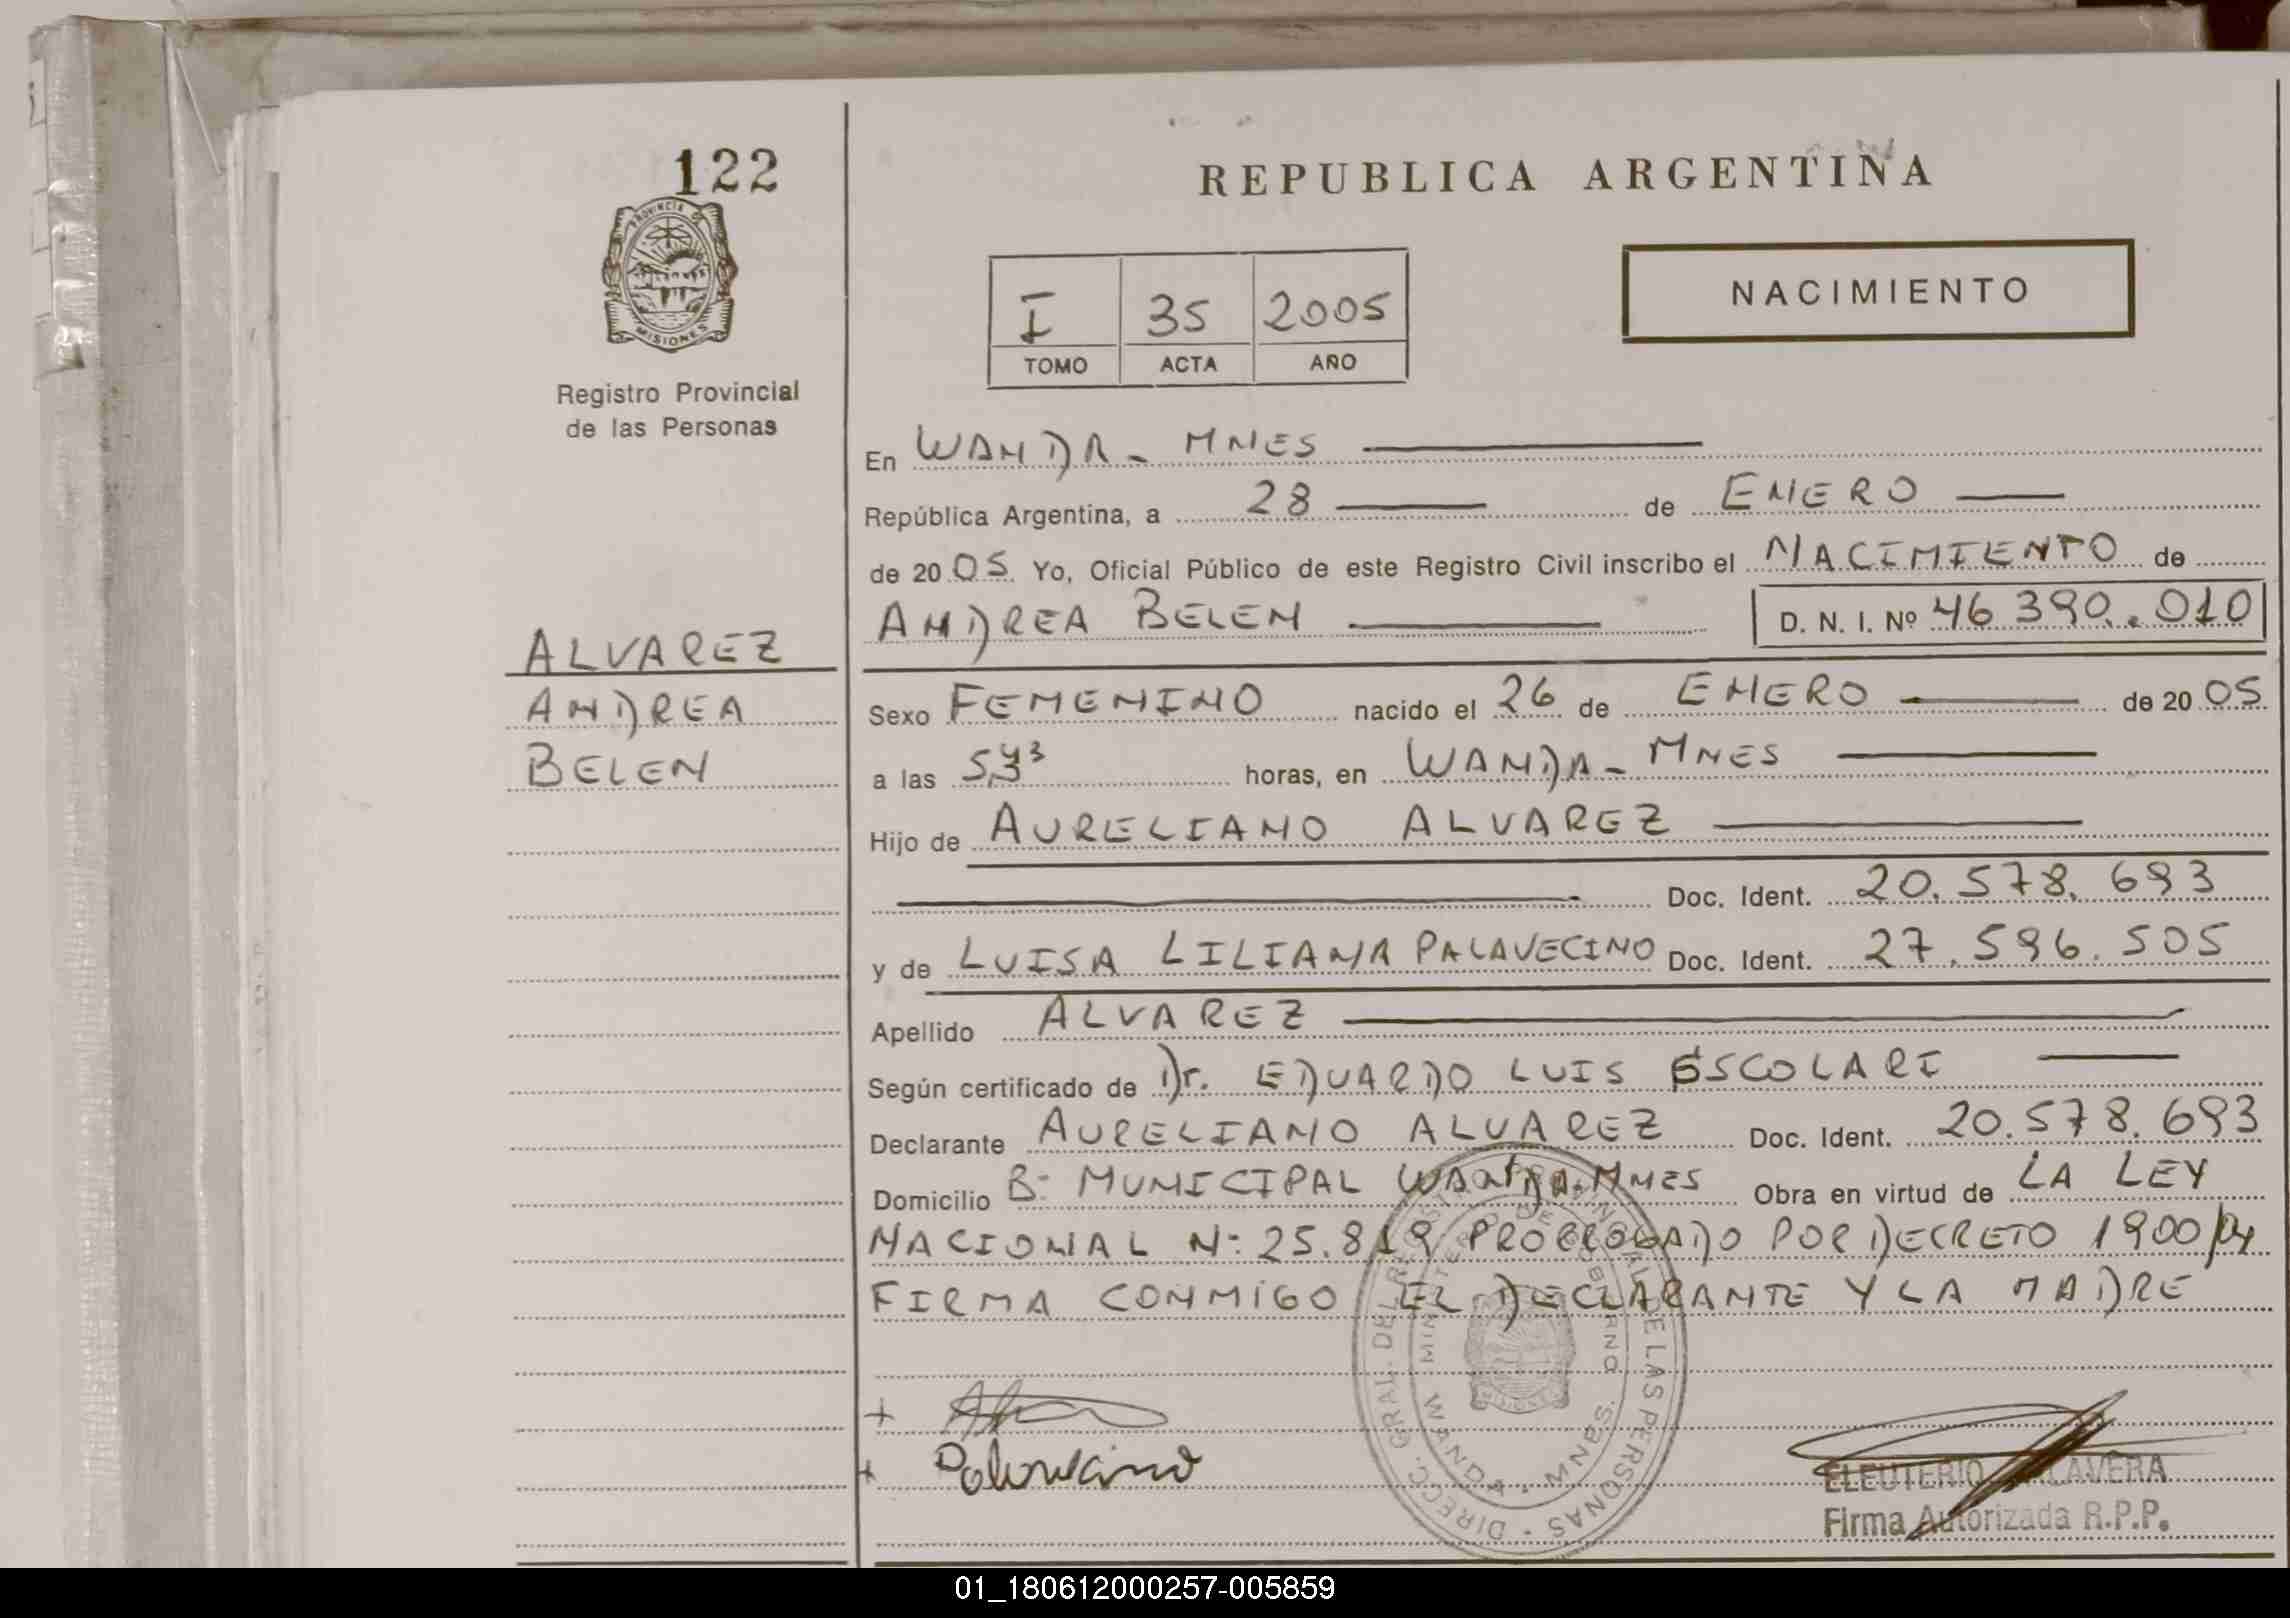 122
PROVINCIA DE
MISIONES
Registro Provincial
de las Personas
ALVAREZ
ANDREA
BELEN
REPUBLICA ARGENTINA
I 35 2005
TOMO ACTA AÑO
NACIMIENTO
En WANDA - MNES
República Argentina, a 28 de ENERO
de 2005 Yo, Oficial Público de este Registro Civil inscribo el NACIMIENTO de
ANDREA BELEN D. N. I. Nº 46 390.010
Sexo FEMENINO nacido el 26 de ENERO de 2005
a las horas, en WANDA - MNES
Hijo de AURELIANO ALVAREZ
Doc. Ident. 20.578.693
y de LUISA LILIANA PALAVECINO Doc. Ident. 27.596.505
Apellido ALVAREZ
Según certificado de Dr. EDUARDO LUIS ESCOLARI
Declarante AURELIANO ALVAREZ Doc. Ident. 20.578.693
Domicilio Bº MUNICIPAL WANDA-MNES Obra en virtud de LA LEY
NACIONAL Nº 25.819 PRORROGADO POR DECRETO 1900/04
FIRMA CONMIGO EL DECLARANTE Y LA MADRE
Palavecino
DIRECC. GRAL. DEL REGISTRO PROVINCIAL DE LAS PERSONAS
MINISTERIO DE GOBIERNO
WANDA - MNES.
ELEUTERIO
Firma Autorizada R.P.P.
01_180612000257-005859